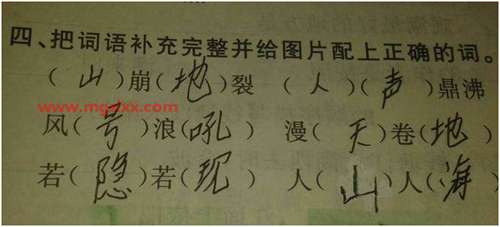 四、把词语补充完整并给图片配上正确的词。
（山）崩（地）裂 （人）（声）鼎沸
www.mgzxx.com
风（号）浪（吼） 漫（天）卷（地）
若（隐）若（现） 人（山）人（海）